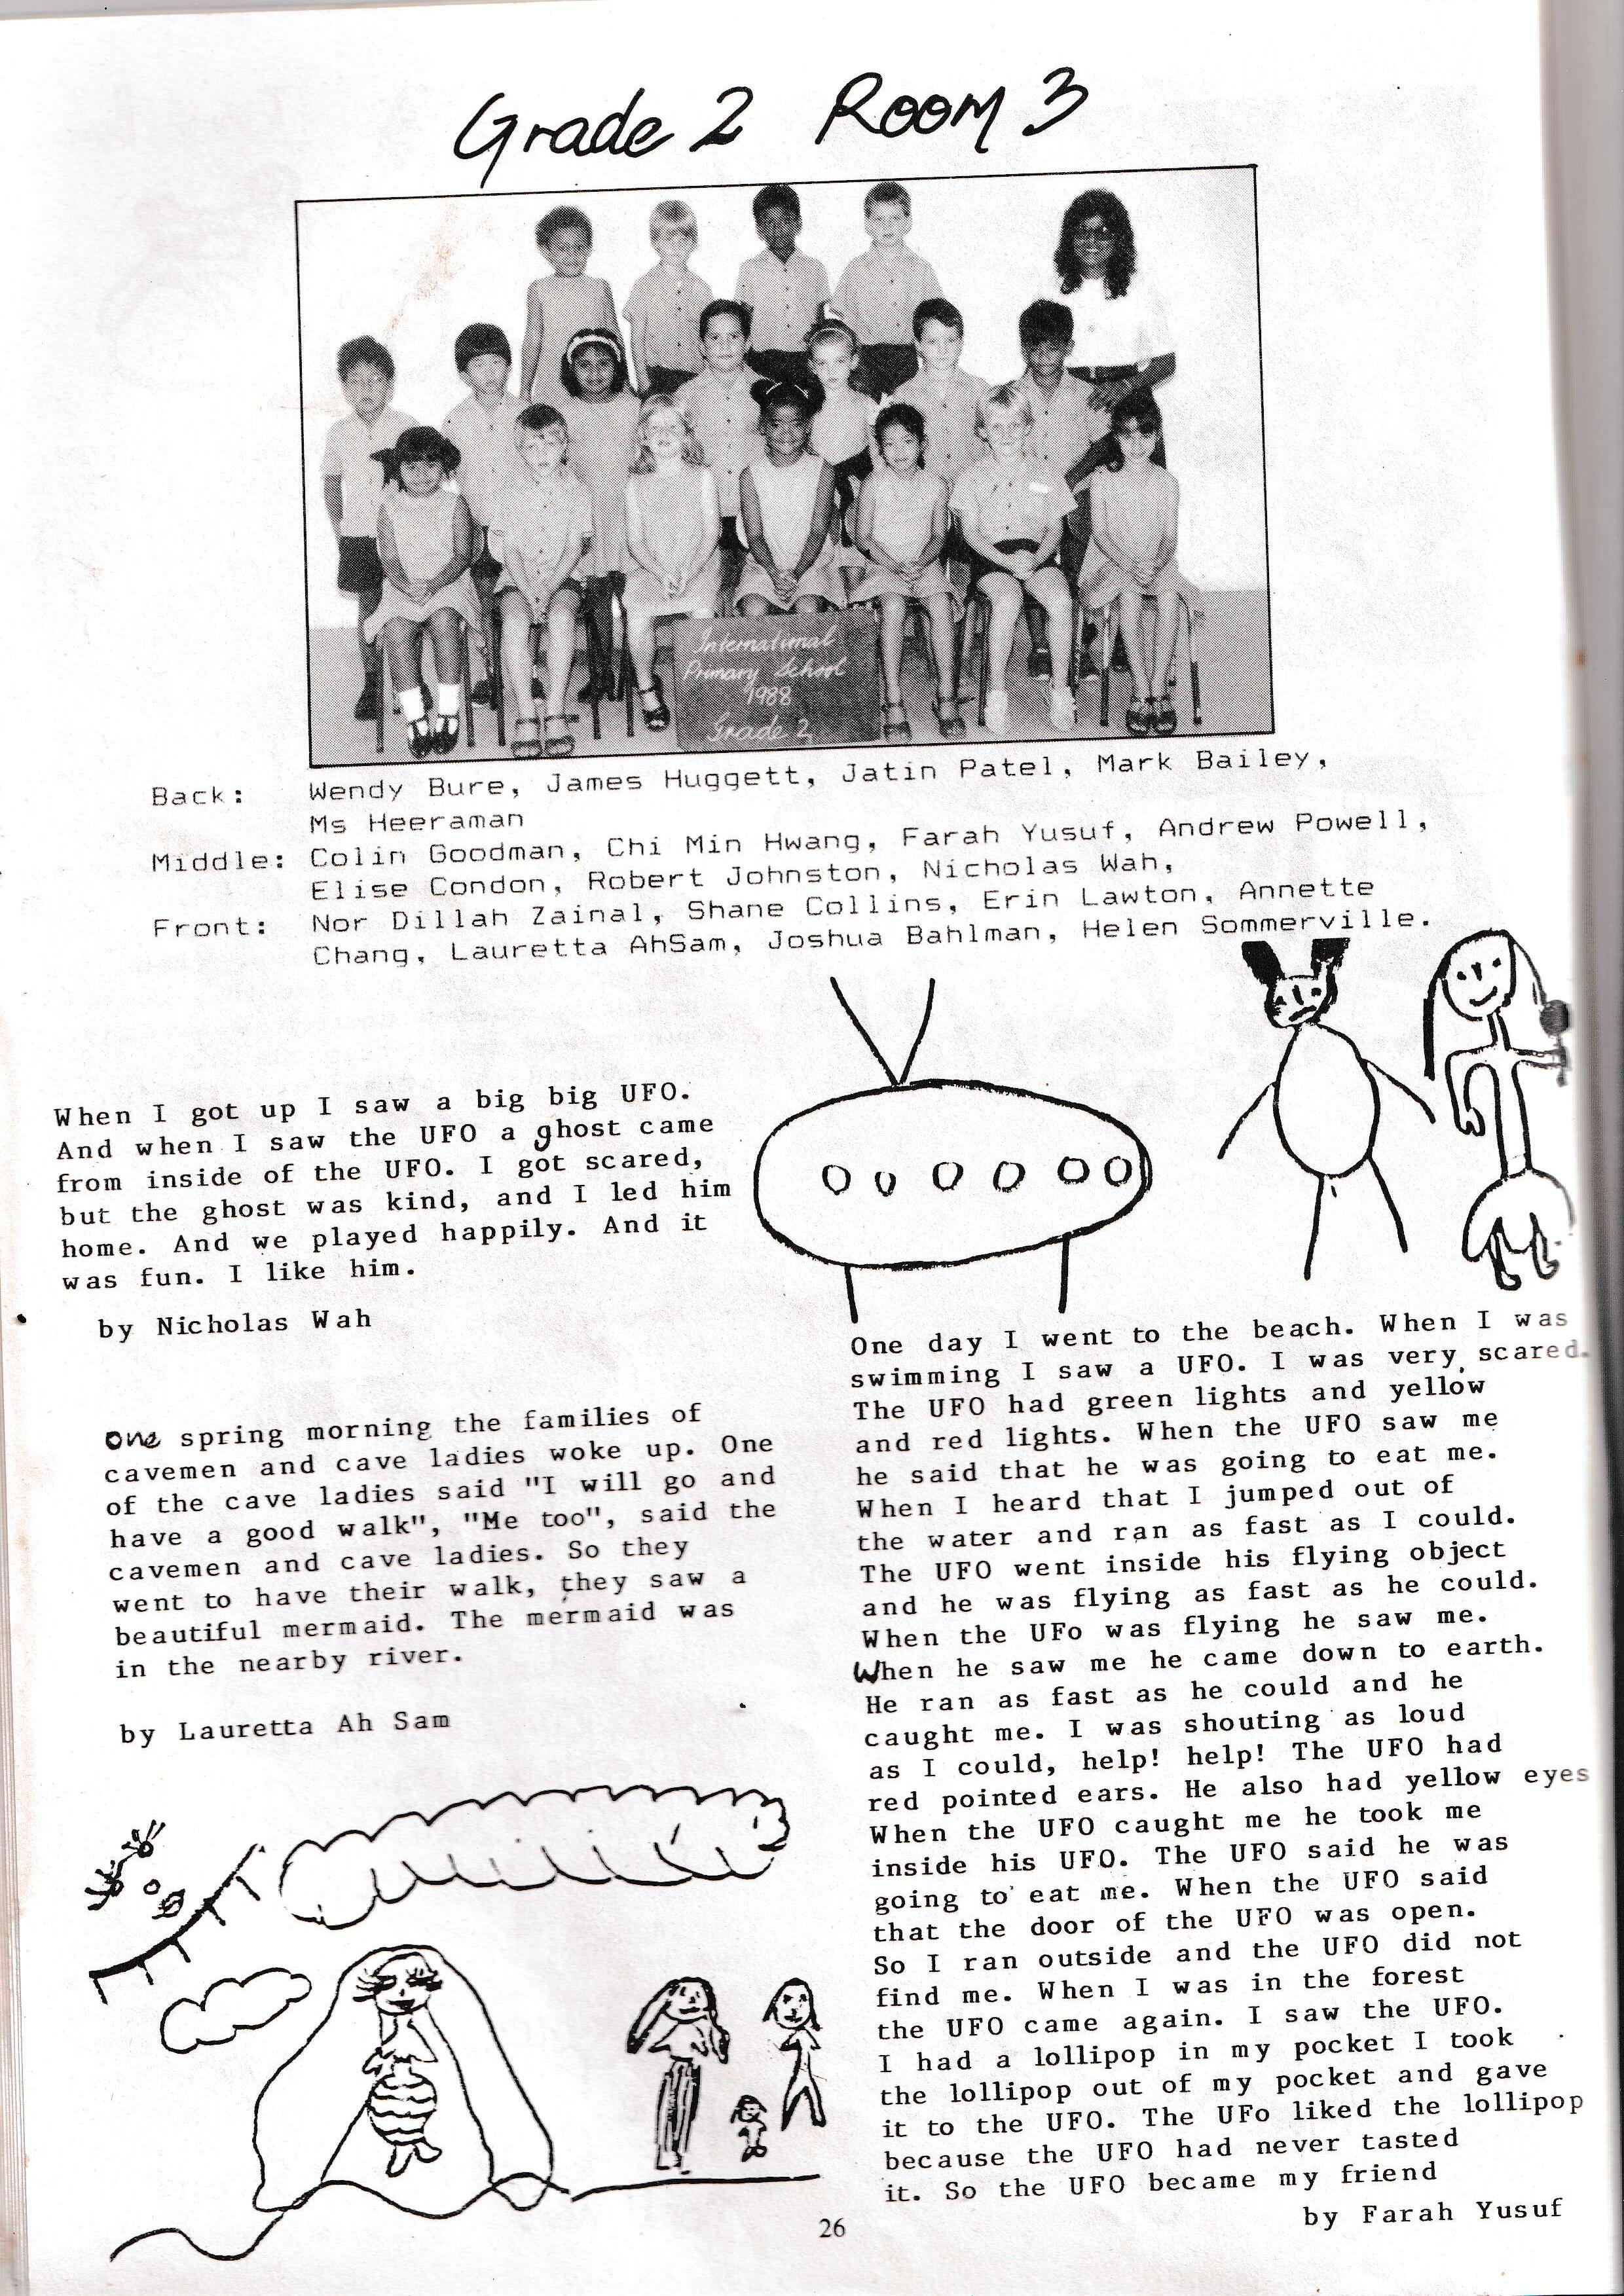 Grade 2 Room 3
International
Primary School
1988
Grade 2
Back: Wendy Bure, James Huggett, Jatin Patel, Mark Bailey,
Ms Heeraman
Middle: Colin Goodman, Chi Min Hwang, Farah Yusuf, Andrew Powell,
Elise Condon, Robert Johnston, Nicholas Wah,
Front: Nor Dillah Zainal, Shane Collins, Erin Lawton, Annette
Chang, Lauretta AhSam, Joshua Bahlman, Helen Sommerville.
When I got up I saw a big big UFO.
And when I saw the UFO a ghost came
from inside of the UFO. I got scared,
but the ghost was kind, and I led him
home. And we played happily. And it
was fun. I like him.
by Nicholas Wah
One spring morning the families of
cavemen and cave ladies woke up. One
of the cave ladies said "I will go and
have a good walk", "Me too", said the
cavemen and cave ladies. So they
went to have their walk, they saw a
beautiful mermaid. The mermaid was
in the nearby river.
by Lauretta Ah Sam
One day I went to the beach. When I was
swimming I saw a UFO. I was very scared.
The UFO had green lights and yellow
and red lights. When the UFO saw me
he said that he was going to eat me.
When I heard that I jumped out of
the water and ran as fast as I could.
The UFO went inside his flying object
and he was flying as fast as he could.
When the UFo was flying he saw me.
When he saw me he came down to earth.
He ran as fast as he could and he
caught me. I was shouting as loud
as I could, help! help! The UFO had
red pointed ears. He also had yellow eyes
When the UFO caught me he took me
inside his UFO. The UFO said he was
going to eat me. When the UFO said
that the door of the UFO was open.
So I ran outside and the UFO did not
find me. When I was in the forest
the UFO came again. I saw the UFO.
I had a lollipop in my pocket I took
the lollipop out of my pocket and gave
it to the UFO. The UFo liked the lollipop
because the UFO had never tasted
it. So the UFO became my friend
by Farah Yusuf
26